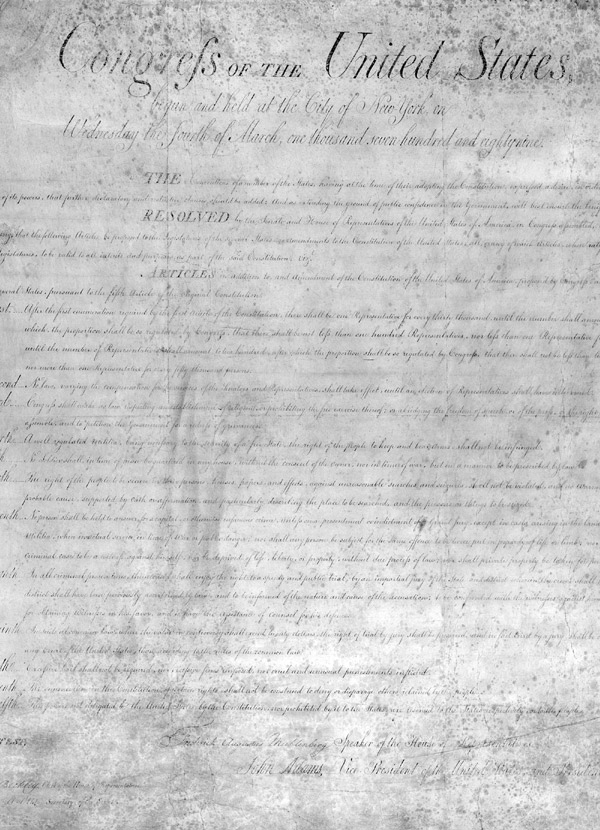 Congress OF THE United States,
begun and held at the City of New York, on
Wednesday the fourth of March, one thousand seven hundred and eighty nine.
THE Conventions of a number of the States, having at the time of their adopting the Constitution, expressed a desire, in order
of its powers, that further declaratory and restrictive clauses should be added: And as extending the ground of public confidence in the Government, will best ensure the
RESOLVED by the Senate and House of Representatives of the United States of America, in Congress assembled,
that the following Articles be proposed to the Legislatures of the several States, as amendments to the Constitution of the United States, all, or any of which Articles, when
Legislatures, to be valid to all intents and purposes, as part of the said Constitution; viz.
ARTICLES in addition to, and Amendment of the Constitution of the United States of America, proposed by Congress
several States, pursuant to the fifth Article of the original Constitution.
After the first enumeration required by the first Article of the Constitution, there shall be one Representative for every thirty thousand, until the number shall
which, the proportion shall be so regulated by Congress, that there shall be not less than one hundred Representatives, nor less than one Representative
until the number of Representatives shall amount to two hundred, after which the proportion shall be so regulated by Congress, that there shall not be less than
nor more than one Representative for every fifty thousand persons.
No law, varying the compensation for the services of the Senators and Representatives, shall take effect, until an election of Representatives shall have intervened.
Congress shall make no law respecting an establishment of religion, or prohibiting the free exercise thereof; or abridging the freedom of speech, or of the press; or the right
assemble, and to petition the Government for a redress of grievances.
A well regulated Militia, being necessary to the security of a free State, the right of the people to keep and bear Arms, shall not be infringed.
No Soldier shall, in time of peace be quartered in any house, without the consent of the owner, nor in time of war, but in a manner to be prescribed by law.
The right of the people to be secure in their persons, houses, papers, and effects, against unreasonable searches and seizures, shall not be violated, and no Warrants
probable cause, supported by oath or affirmation, and particularly describing the place to be searched, and the persons or things to be seized.
No person shall be held to answer for a capital, or otherwise infamous crime, unless on a presentment or indictment of a Grand Jury, except in cases arising in the land
Militia, when in actual service in time of War or public danger; nor shall any person be subject for the same offence to be twice put in jeopardy of life or limb; nor
criminal case to be a witness against himself, nor be deprived of life, liberty, or property, without due process of law; nor shall private property be taken for
In all criminal prosecutions, the accused shall enjoy the right to a speedy and public trial, by an impartial jury of the State and district wherein the crime shall
district shall have been previously ascertained by law, and to be informed of the nature and cause of the accusation; to be confronted with the witnesses against
for obtaining witnesses in his favor, and to have the assistance of counsel for his defence.
In suits at common law, where the value in controversy shall exceed twenty dollars, the right of trial by jury shall be preserved, and no fact tried by a jury, shall be
any Court of the United States, than according to the rules of the common law.
Excessive bail shall not be required, nor excessive fines imposed, nor cruel and unusual punishments inflicted.
The enumeration in the Constitution, of certain rights, shall not be construed to deny or disparage others retained by the people.
The powers not delegated to the United States by the Constitution, nor prohibited by it to the States, are reserved to the States respectively, or to the people.
Frederick Augustus Muhlenberg Speaker of the House of Representatives.
John Adams, Vice-President of the United States, and President
Secretary of the Senate